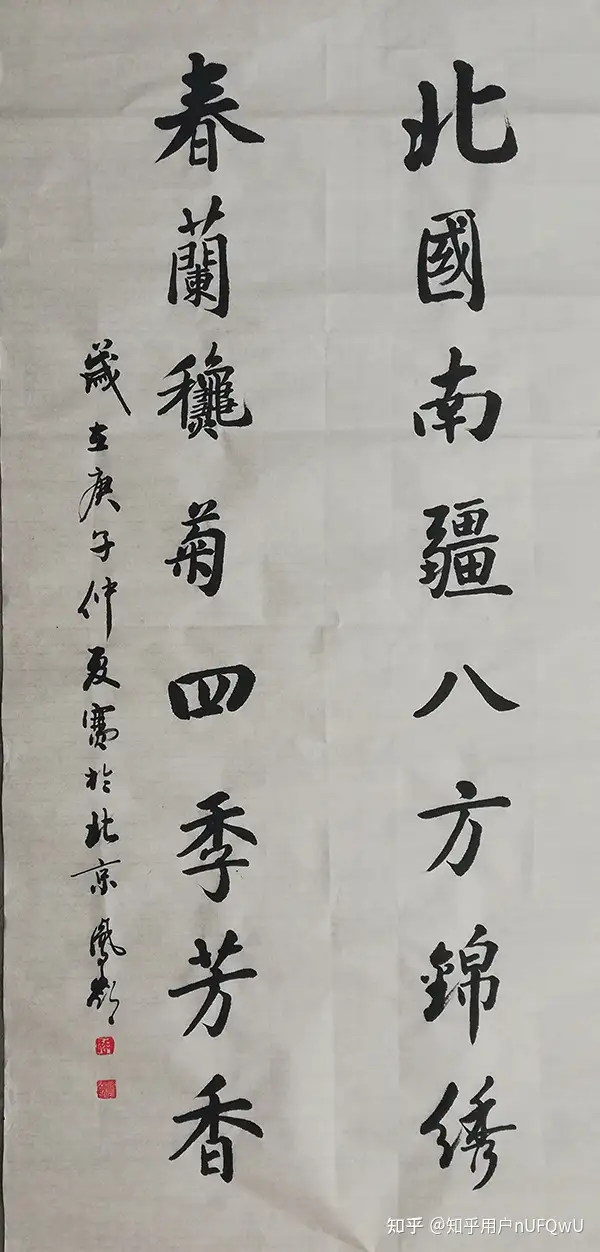 北國南疆八方錦绣
春蘭龝菊四季芳香
歲在庚子仲夏寫於北京 鳳
知乎 @知乎用户nUFQwU